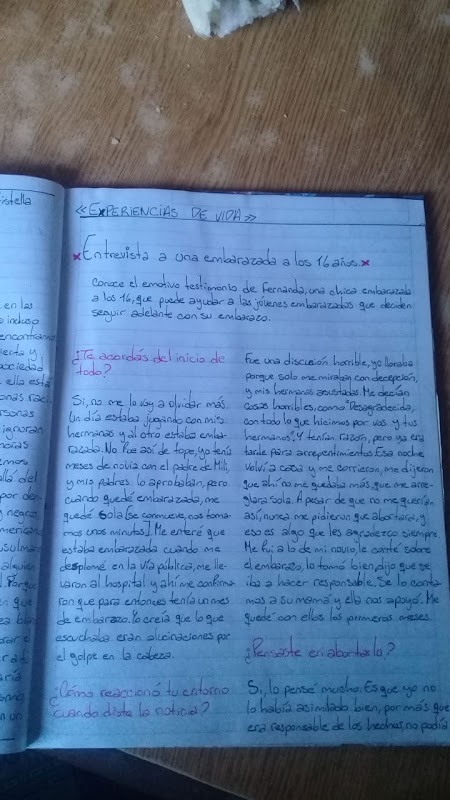 istella
en las
incluso
encontramos
ierta y
sociedad
ella está
onas raci-
rsonas
ignoran
emos
llá del
por den-
y negra
americano
usulman
alguien
Porque
en que
brar el
aría
un un
«EXPERIENCIAS DE VIDA»
Entrevista a una embarazada a los 16 años.
Conoce el emotivo testimonio de Fernanda, una chica embarazada
a los 16, que puede ayudar a las jóvenes embarazadas que deciden
seguir adelante con su embarazo.
¿Te acordás del inicio de
todo?
Si, no me lo voy a olvidar más.
Un día estaba jugando con mis
hermanas y al otro estaba emba-
razada. No fue así de tope, yo tenía
meses de novia con el padre de Mili,
y mis padres lo aprobaban, pero
cuando quedé embarazada, me
quedé sola [se conmueve, nos toma-
mos unos minutos]. Me enteré que
estaba embarazada cuando me
desplomé en la vía pública, me lle-
varon al hospital y ahí me confirma-
ron que para entonces tenía un mes
de embarazo. Yo creía que lo que
escuchaba eran alucinaciones por
el golpe en la cabeza.
¿Cómo reaccionó tu entorno
cuando diste la noticia?
Fue una discusión horrible, yo lloraba
porque solo me miraban con decepción,
y mis hermanas asustadas. Me decían
cosas horribles, como "Desagradecida,
con todo lo que hicimos por vos y tus
hermanos". Y tenían razón, pero ya era
tarde para arrepentimientos. Esa noche
volví a casa y me corrieron, me dijeron
que ahí no me quedaba más, que me arre-
glara sola. A pesar de que no me querían
así, nunca me pidieron que abortara, y
eso es algo que les agradezco siempre.
Me fui a lo de mi novio, le conté sobre
el embarazo, lo tomó bien, dijo que se
iba a hacer responsable. Se lo conta-
mos a su mamá y ella nos apoyó. Me
quedé con ellos los primeros meses.
¿Pensaste en abortarlo?
Si, lo pensé mucho. Es que yo no
lo había asimilado bien, por más que
era responsable de los hechos, no podía